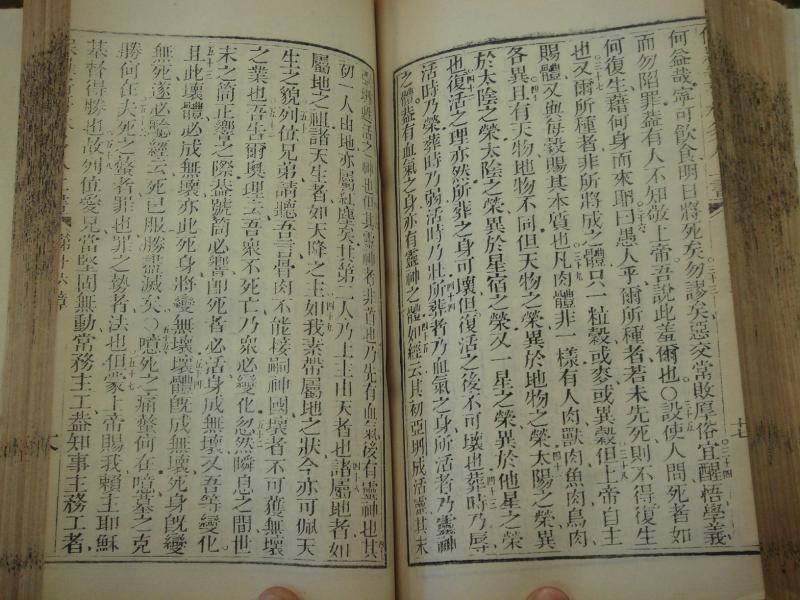 何益哉寧可飲食明日將死矣勿謬矣惡交常敗厚俗宜醒悟學義
而勿陷罪蓋有人不知敬上帝吾說此羞爾也〇設使人問死者如
何復生藉何身而來耶曰愚人乎爾所種者若未先死則不得復生
也又爾所種者非所將成之體只一粒穀或麥或異穀但上帝自主
賜體又與每穀賜其本質也凡肉體非一樣有人肉獸肉魚肉鳥肉
各異且有天物地物不同但天物之榮異於地物之榮太陽之榮異
於太陰之榮太陰之榮異於星宿之榮又一星之榮異於他星之榮
也復活之理亦然所葬之身可壞但復活之後不可壞也葬時乃辱
活時乃榮葬時乃弱活時乃壯所葬者乃血氣之身所活者乃靈神
之體蓋有血氣之身亦有靈神之體如經云其初亞坍成活靈其末
亞坍為活之神也但其靈神者非首也乃先有血氣後有靈神也其
初一人由地亦屬紅塵矣其第二人乃上主由天者也諸屬地者如
屬地之祖諸天生者如天降之主如我素帶屬地之狀今亦可佩天
生之貌列位兄弟請聽吾言骨肉不能接嗣神國壞者不可獲無壞
之業也吾告爾奧理云吾眾不死亡乃眾必變化忽然瞬息之間世
末之筒正響之際蓋號筒必響即死者必活身成無壞又吾等變化
且此壞體必成無壞亦此死身將變無壞壞體既成無壞死身既變
無死遂必驗經云死已服勝盡滅矣〇噫死之痛螫何在噫墓之克
勝何在夫死之螫者罪也罪之勢者法也但蒙上帝賜我賴主耶穌
基督得勝也故列位愛兒當堅固無動常務主工蓋知事主務工者
第十六章
十七